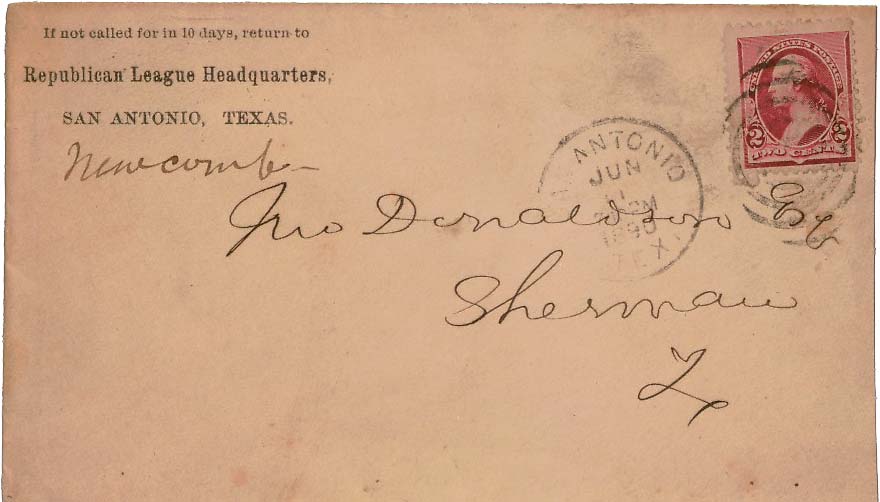 If not called for in 10 days, return to
Republican League Headquarters,
SAN ANTONIO, TEXAS.
Newcomb
UNITED STATES POSTAGE
2 2
TWO CENTS
ANTONIO
JUN
1
PM
1890
TEX.
Jno Donaldson Esq
Sherman
Tx